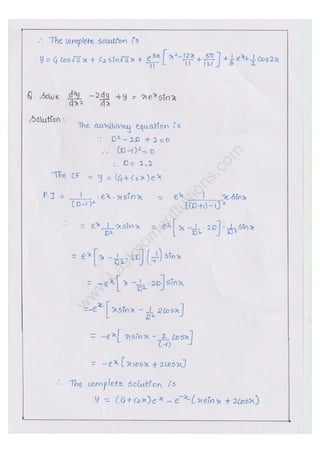 ∴ The complete solution is
y = C₁ cos√2 x + C₂ sin√2 x + e^{3x}/11 [x² - 12x/11 + 50/121] + 1/3 eˣ + 1/2 cos2x
Q. Solve d²y/dx² - 2dy/dx + y = xeˣsinx
Solution:
The auxiliary equation is
∵ D² - 2D + 1 = 0
∴ (D-1)² = 0
∴ D = 1,1
The CF = y = (C₁ + C₂x)eˣ
P.I = 1/(D-1)² · eˣ · xsinx = eˣ · 1/[(D+1)-1]² xsinx
∴ = eˣ 1/D² xsinx = eˣ[x - 1/D² · 2D] · 1/D² sinx
= eˣ[x - 1/D² · 2D](1/-1) sinx
= -eˣ[x - 1/D² · 2D] sinx
= -eˣ[xsinx - 1/D² 2cosx]
= -eˣ[xsinx - 2/(-1) cosx]
= -eˣ[xcosx + 2cosx]
∴ The complete solution is
y = (C₁ + C₂x)eˣ - e^{-x}(xsinx + 2cosx)
www.lastmomenttuitions.com